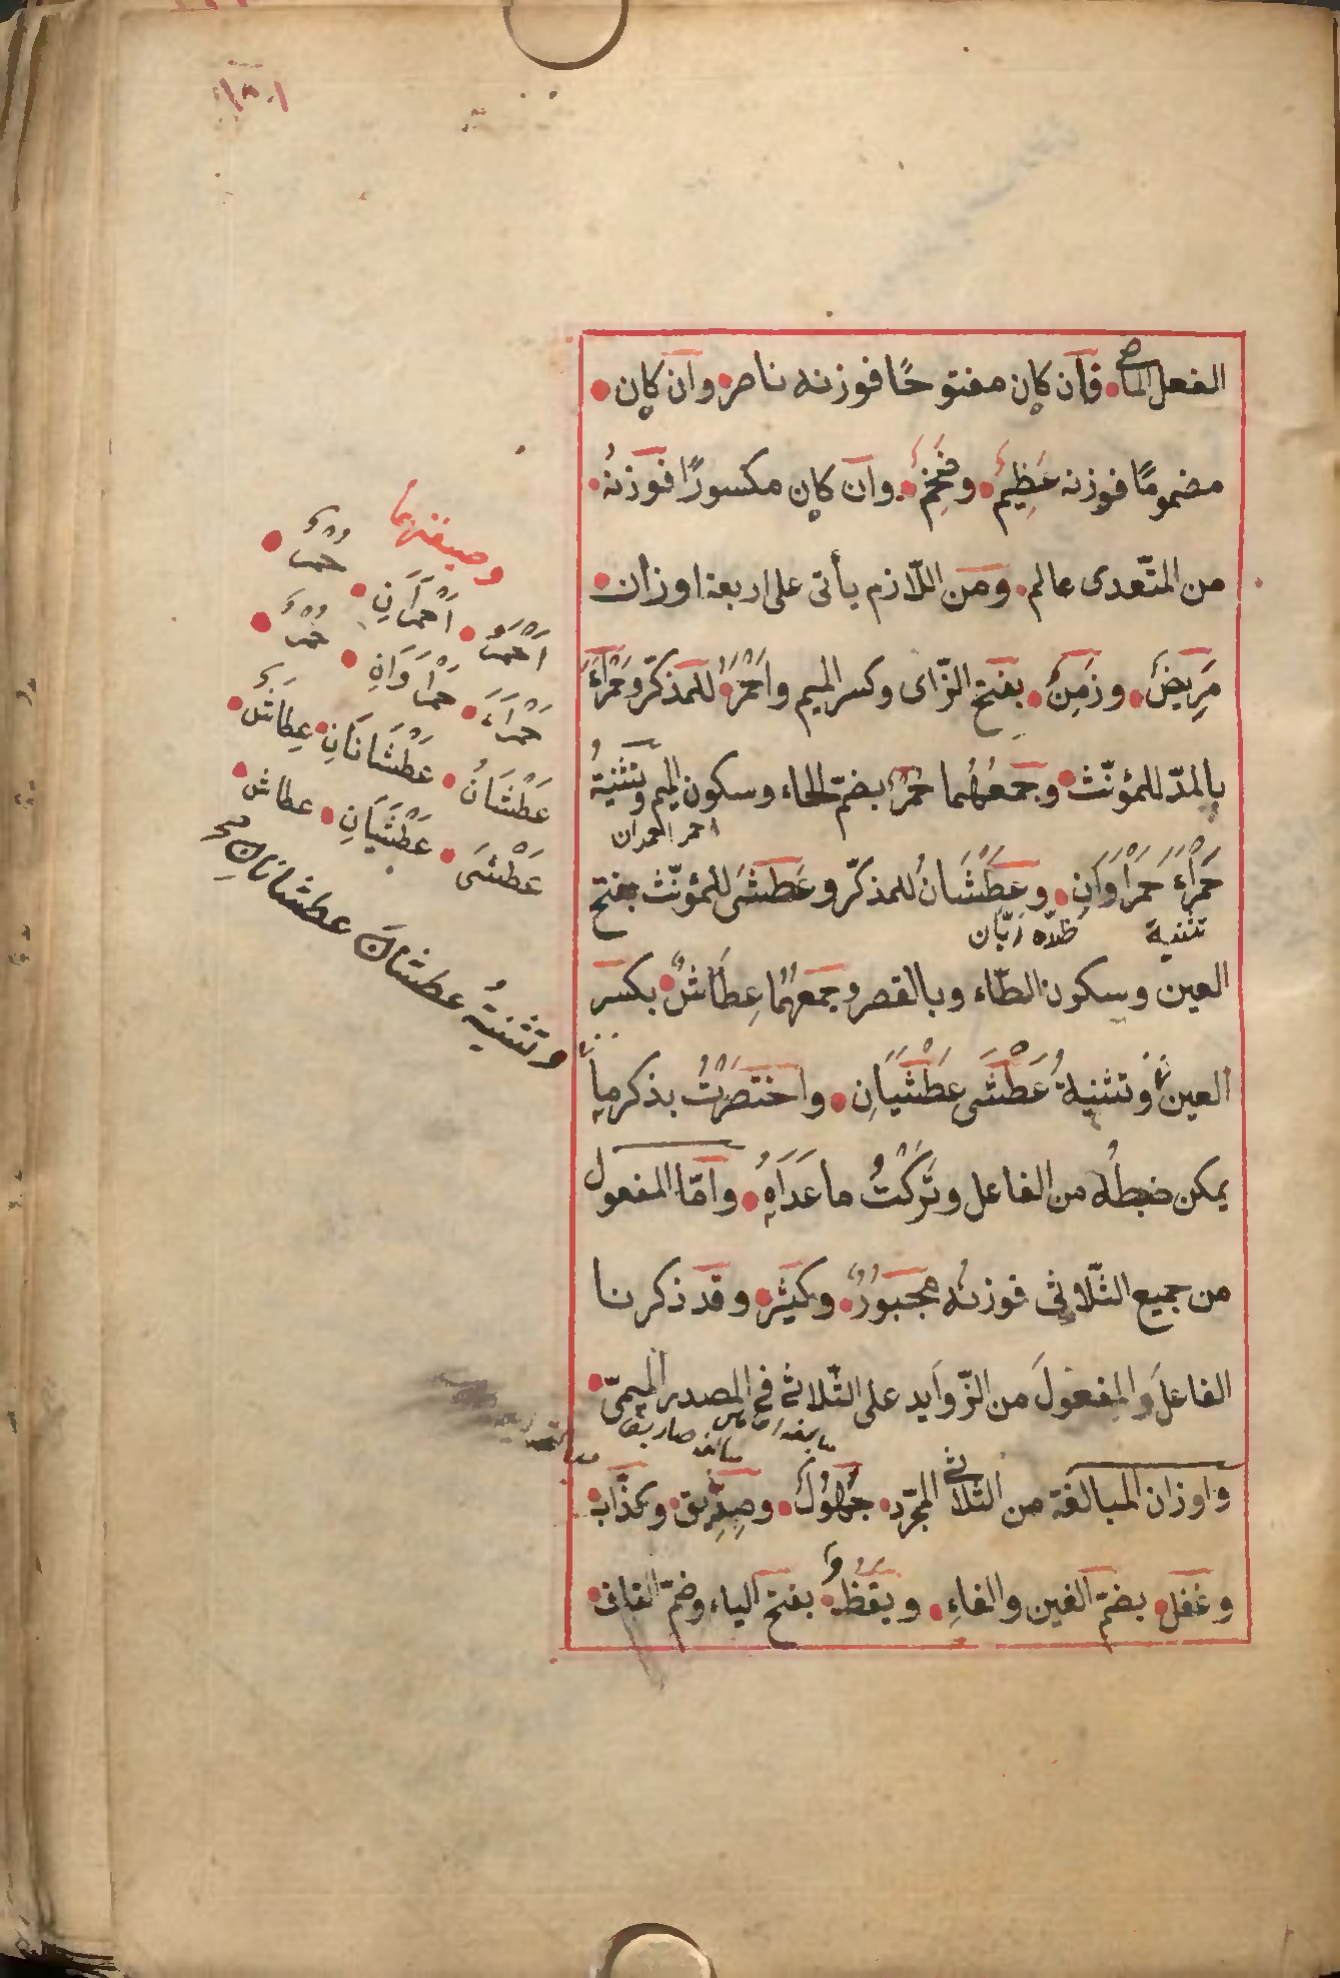 الفعل الماضى فان كان مفتوحًا فوزنه ناصر وان كان
مضمومًا فوزنه عَظِيمٌ وفَخِمٌ وان كان مكسورًا فوزنُهُ
من المتّعدى عالم ومن اللّازم يأتى على اربعة اوزان
مَرِيضٌ وزَمِنٌ بفتح الزّاى وكسر الميم واَحْمَرُ للمذكّر وحَمْرَاءُ
بالمدّ للمؤنّث وجَمعُهُما حُمْرٌ بضمّ الحاء وسكون الميم وتثنيةُ
احمر احمران
حَمْرَاءَ حَمْرَاوَانِ وعَطْشَانُ للمذكّر وعَطْشَى للمؤنّث بفتح
تثنية
العين وسكون الطّاء وبالقصر وجمعهُمَا عِطَاشٌ بكسر
العين وتثنيةُ عَطْشَى عَطْشَيَانِ واختصَرْتُ بذكر ما
يمكن ضبطُهُ من الفاعل وتَرَكْتُ ما عَدَاهُ وامّا المفعول
من جميع الثّلاثى فوزنُهُ مجبَورٌ وكَثِير وقد ذكرنا
الفاعلَ والمفعولَ من الزّوايد على الثّلاثى فى المصدر الميمىّ
واوزان المبالغة من الثّلاثى المجرّد جَهُولٌ وصِدِّيق وكذّاب
وغفل بضمّ الغين والفاءِ ويقظٌ بفتح الياء وضمّ القاف
وصيغتهما
اَحْمَرُ اَحْمَرَانِ حُمْرٌ
حَمْرَاءُ حَمْرَاوَانِ حُمْرٌ
عَطْشَانُ عَطْشَانَانِ عِطَاشٌ
عَطْشَى عَطْشَيَانِ عطاش
وتثنيةُ عطشان عطشانانِ